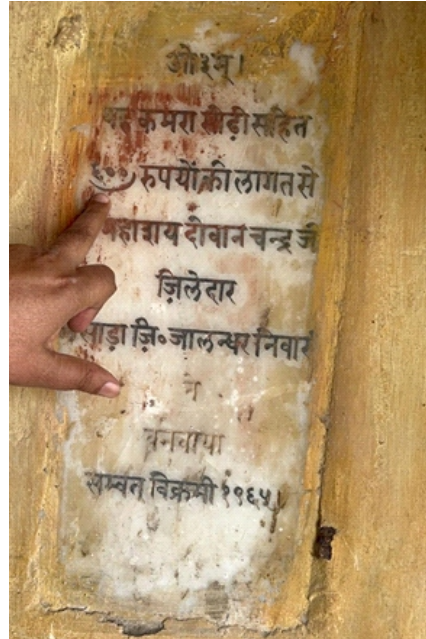 ओ३म्।
यह कमरा सीढ़ी सहित
६०० रुपयों की लागत से
महाशय दीवान चन्द्र जी
ज़िलेदार
ज़ि॰ जालन्धर निवासी
ने
बनवाया
सम्वत विक्रमी १९६५।